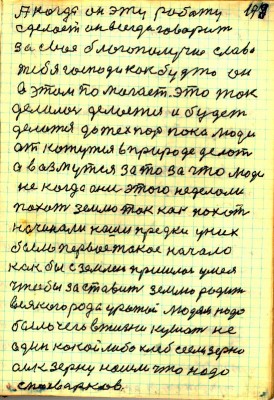 193
А когда он эту работу
сделает он всегда говорит
за свое благополучие слава
тебя господи как будто он
в этом помогает. это так
делалос делается и будет
делатся до тех пор пока люди
от кажутся в природе делат
а возмутся за то за что люди
не когда они этого неделали
пахат землю так как пахат
начинали наши предки у них
было первое такое начало
как бы с земли пришлос умея
чтобы заставит землю родит
всякого рода урожай людям надо
было чего в жизни кушат не
один какой либо хлеб сеем зерно
али к зерну нашли что надо